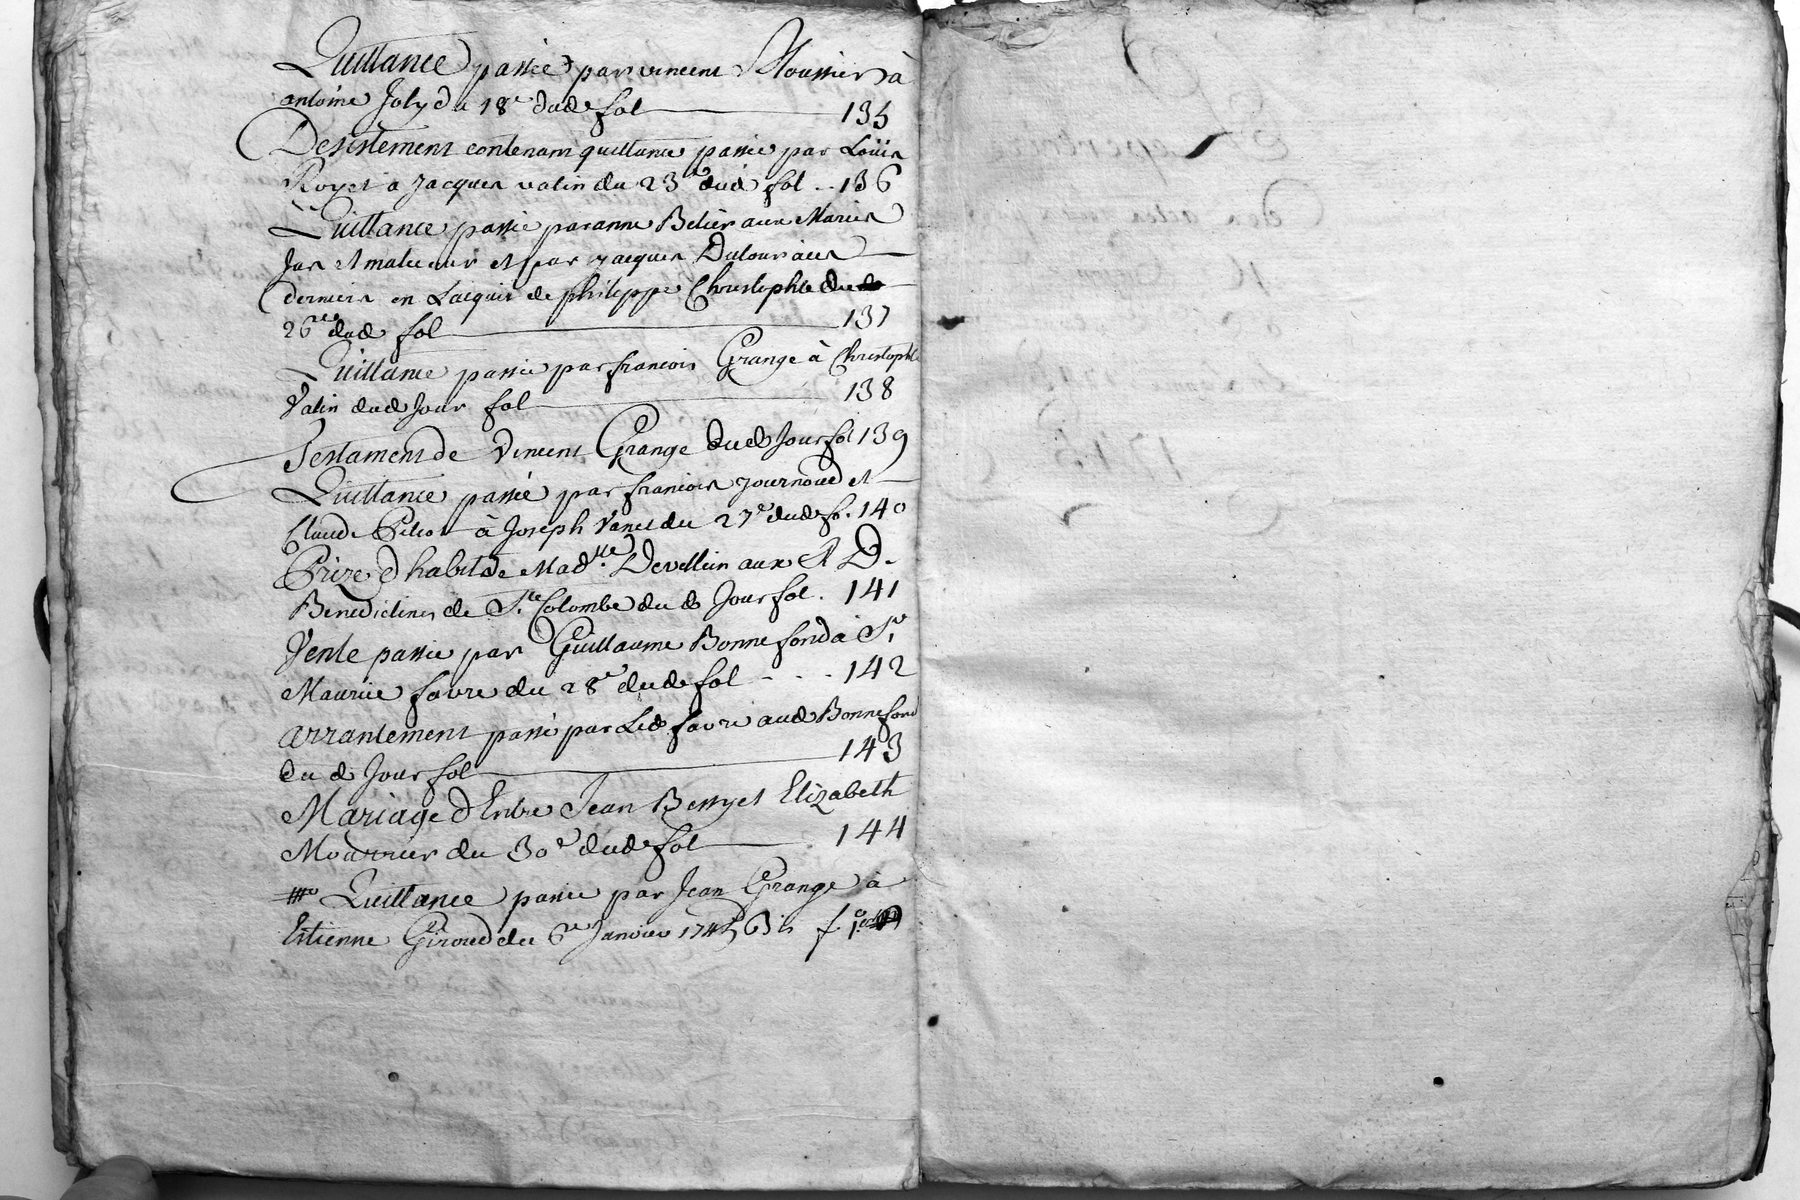 Quittance passée par vincent Moussier à
antoine Joly du 18e dud fol 135
Desistement contenant quittance passée par Loüis
Royet a Jacques vatin du 23e dud fol .. 136
Quittance passée par anne Belier aux Mariés
Jas et et par jacques Dutour aux
derniers en Lacquit de philippe Christophle du
26e dud fol 137
Quittance passée par francois Grange à Christophle
Vatin dud Jour fol 138
Testament de Vincent Grange dud Jour fol 139
Quittance passée par francois journoud et
Claude à Joseph Vanel du 27e dud f. 140
Prize d'habit de Madlle. Devellein aux R D.
Benedictines de Ste Colombe du d Jour fol. 141
Vente passée par Guillaume Bonnefond à Sr
Maurice favre du 28e dud fol - . . . 142
arrantement passé par Led favre aud Bonnefond
du d Jour fol 143
Mariage d'Entre Jean Bessy et Elizabeth
Mourrier du 30e dud fol 144
Quittance passée par Jean Grange à
Estienne Giroud du 6e Janvier 174 f. 1